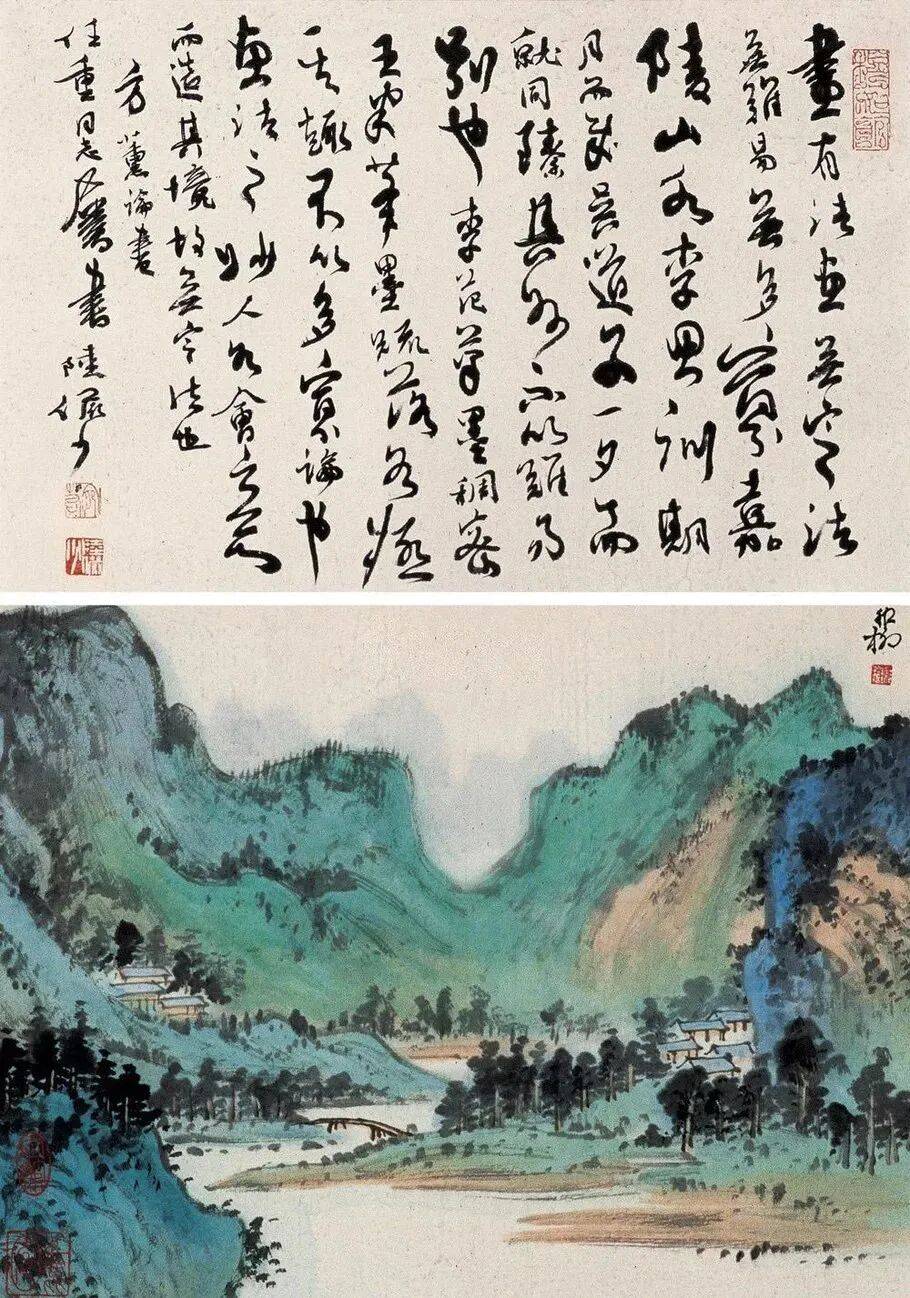 畫有法畫無定法
無難易無多寡嘉
陵山水李思訓期
月而成吳道子一夕而
就同臻其妙不以難易
別也李范筆墨稠密
王米筆墨疏落各極
其趣不以多寡論也
畫法之妙人各會之意
而造其境故無定法也
方薰論畫
任重同志屬書陸儼少
稚柳